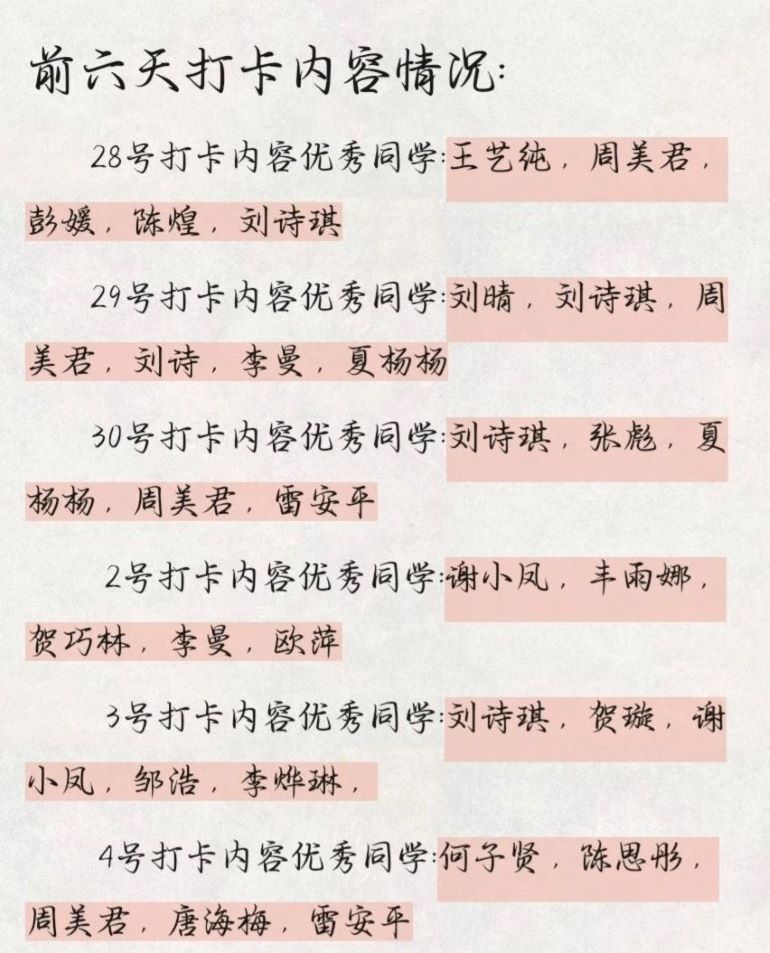 前六天打卡内容情况:
28号打卡内容优秀同学:王艺纯，周美君，
彭媛，陈煌，刘诗琪
29号打卡内容优秀同学:刘晴，刘诗琪，周
美君，刘诗，李曼，夏杨杨
30号打卡内容优秀同学:刘诗琪，张彪，夏
杨杨，周美君，雷安平
2号打卡内容优秀同学:谢小凤，丰雨娜，
贺巧林，李曼，欧萍
3号打卡内容优秀同学:刘诗琪，贺璇，谢
小凤，邹浩，李烨琳，
4号打卡内容优秀同学:何子贤，陈思彤，
周美君，唐海梅，雷安平